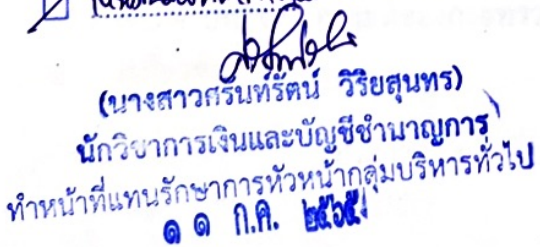 (นางสาวศรันท์รัตน์ วิริยสุนทร)
นักวิชาการเงินและบัญชีชำนาญการ
ทำหน้าที่แทนรักษาการหัวหน้ากลุ่มบริหารทั่วไป
๑๑ ก.ค. ๒๕๖๕